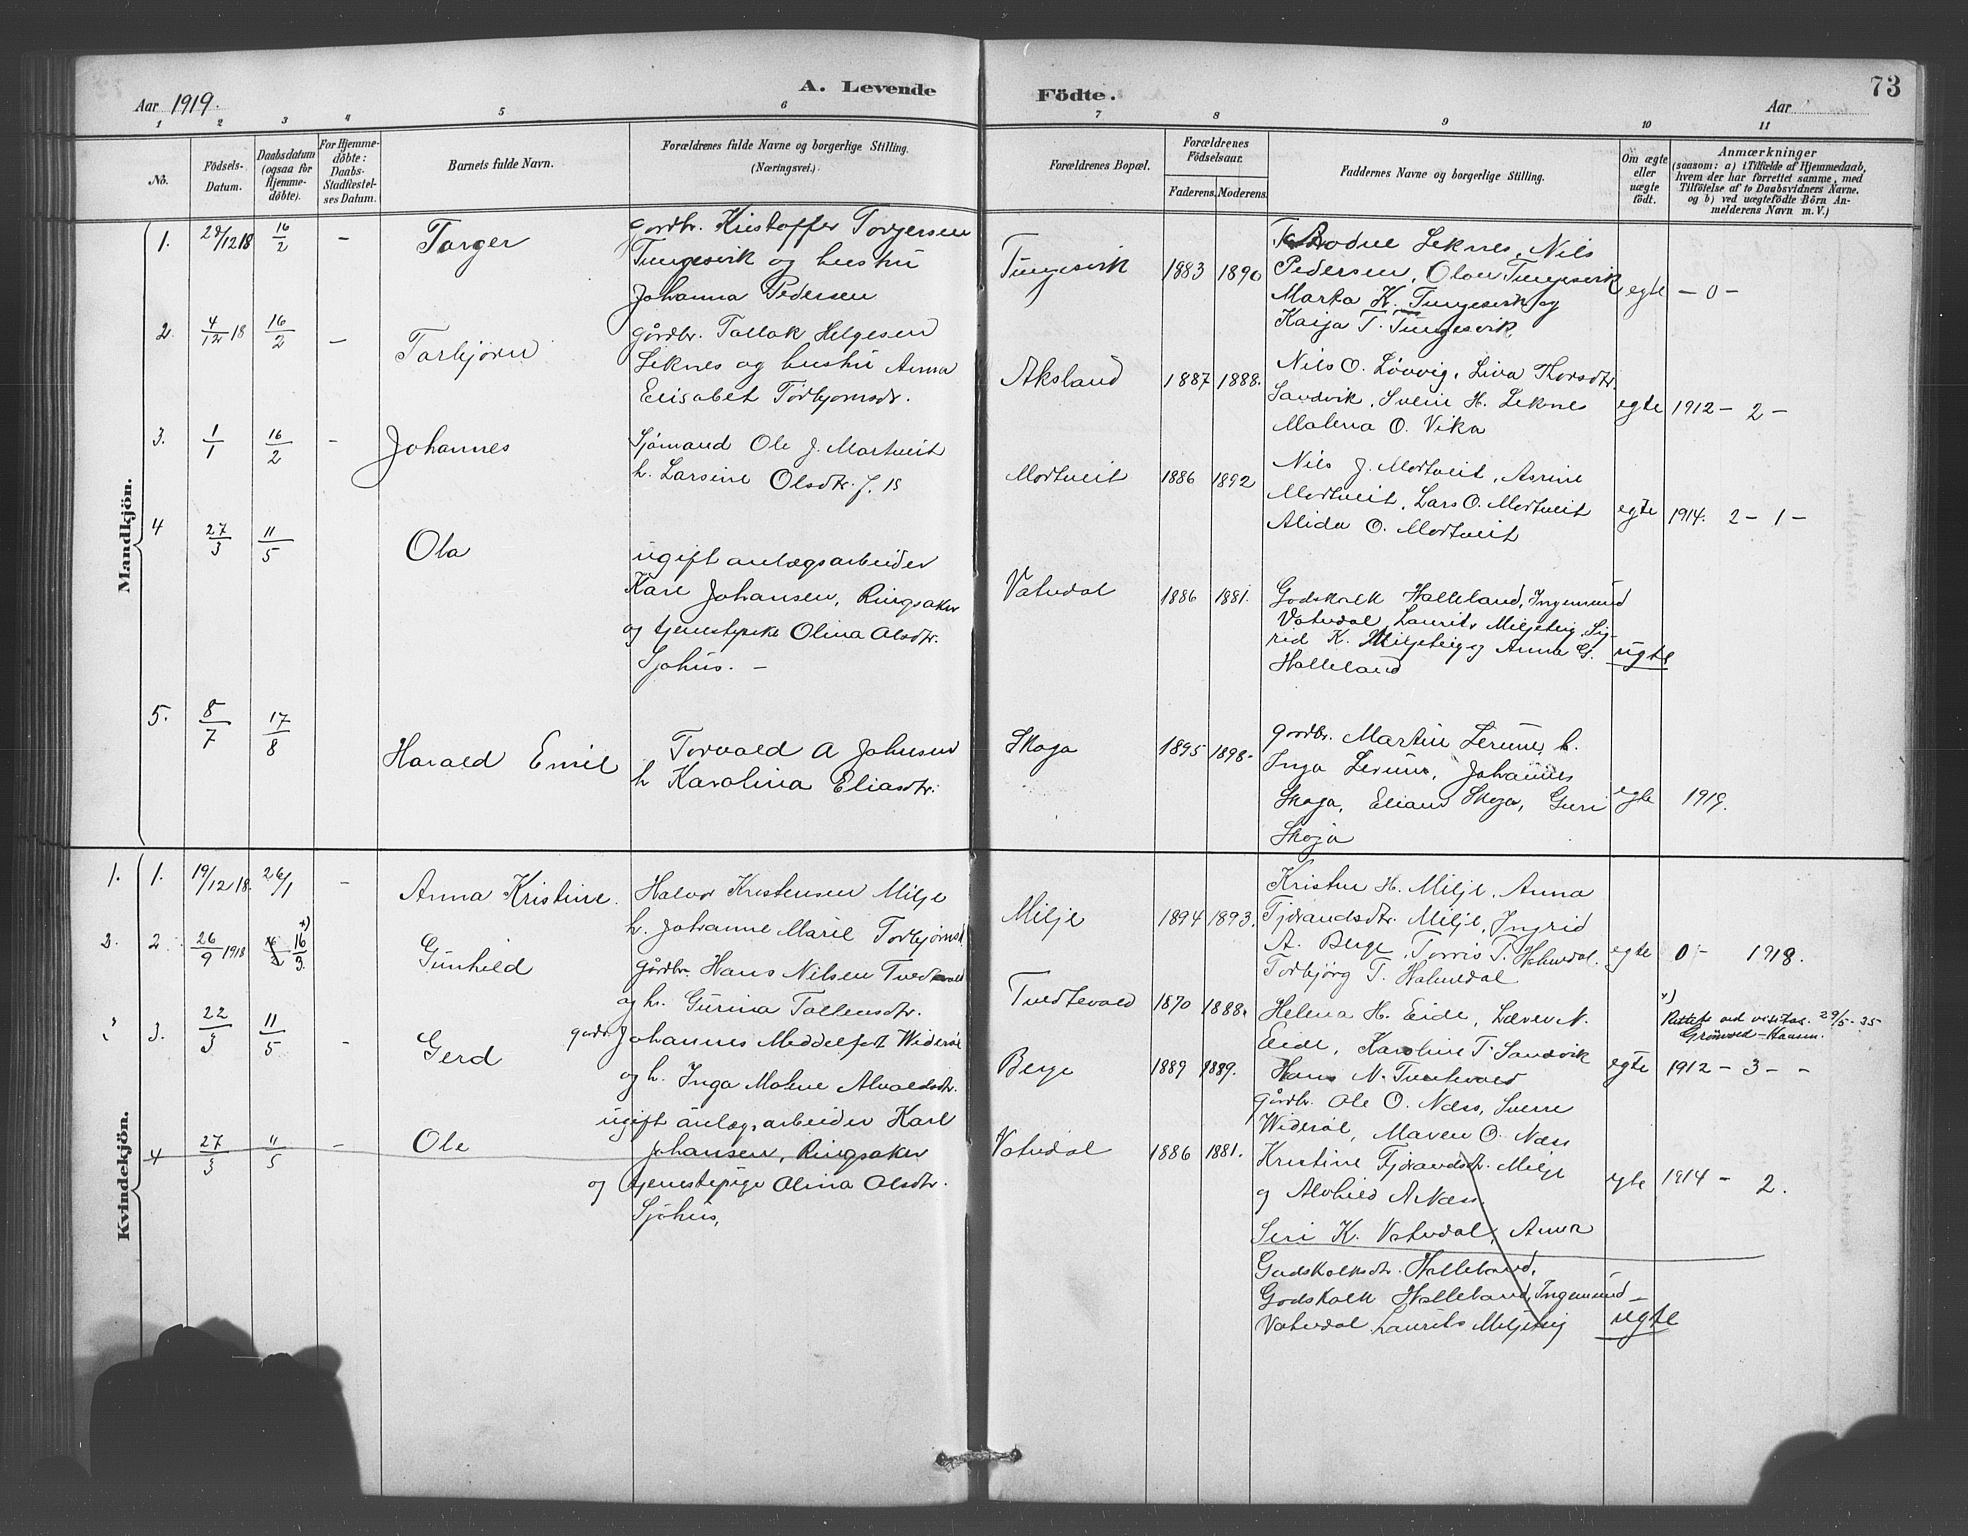 Aar 1919.
A. Levende
Födte.
Aar
73
1 2 3 4 5 6 7 8 9 10 11
No.
Födsels-
Datum.
Daabsdatum
(ogsaa for
Hjemme-
döbte).
For Hjemme-
döbte:
Daabs-
Stadfestel-
ses Datum.
Barnets fulde Navn.
Forældrenes fulde Navne og borgerlige Stilling.
(Næringsvei.)
Forældrenes Bopæl.
Forældrenes
Födselsaar.
Faderens. Moderens.
Faddernes Navne og borgerlige Stilling.
Om ægte
eller
uægte
födt.
Anmærkninger
(saasom: a) i Tilfælde af Hjemmedaab,
hvem der har forrettet samme, med
Tilföielse af to Daabsvidners Navne.
og b) ved uægtefödte Börn An-
melderens Navn m. V.)
Mandkjön.
1. 16/2 - Torger
gordbr. Kristoffer Torgersen
Tungesvik og hustru
Johanna Pedersen
Tungesvik 1883 1890
Leknes, Nils
Pedersen, Olau Tungesvik
Marta K. Tungesvik og
Kaija T. Tungesvik
egte - 0 -
2. 4/12 18 16/2 - Torbjörn
gårdbr. Tollak Helgesen
Leknes og hustru Anna
Elisabet Torbjornsdr.
Aksland 1887 1888.
Nils O. Lövvig, Liva Thorsdtr.
Sandvik, Svein H. Leknes
Malena O. Vika
egte 1912 - 2 -
3. 1/1 16/2 - Johannes
Sjömand Ole J. Mortveit
h. Larsine Olsdtr.
Mortveit 1886 1892
Nils J. Mortveit, Asrine
Mortveit, Lars O. Mortveit
Alida O. Mortveit
egte 1914. 2 - 1 -
4 27/3 11/5 Ola
ugift anlægsarbeider
Karl Johansen, Ringsaker
og tjenestepike Olina Olsdtr.
Sjohus. -
Vatndal 1886 1881.
Godskalk Halleland, Ingemund
Vatndal, Laurits Miljeteig, Sig-
rid K. Miljeteig og Anna G.
Halleland
ugte
5. 8/7 17/8 Harald Emil
Torvald A Johnsen
h Karolina Eliasdtr.
Skoga 1895 1898.
gordbr. Martin Lerunes h.
Inga Lerunes, Johannes
Skoga, Elians Skoga, Guri
Skoga
egte 1919.
Kvindekjön.
1. 1. 19/12 18. 26/1 - Anna Kristine.
Halvor Kristensen Milje
h. Johanne Marie Torbjørnsd
Milje 1894 1893.
Kristen H. Milje, Anna
Tjorandsdtr. Milje, Ingrid
A. Berge, Torris T. Halvedal.
Torbjörg T. Halvedal
egte 0 - 1918.
2. 2. 26/9 1918 16/3. Gunhild
gårdbr. Hans Nilsen Tvedtevold
og h. Gurina Tollensdtr.
Tvedtevold 1870 1888.
Helena H. Eide, N.
Eide, Karoline T. Sandvik
Hans N. Tvedtevold
Rettet ved visitas. 29/5-35
Grönvold-Hansen.
3. 22/3 11/5 - Gerd
gordbr. Johannes Meddelfart Wideröe
og h. Inga Malene Alvaldsdtr.
Berge 1889 1889.
egte 1912 - 3 - -
gårdbr. Ole O. Næss, Sverre
Wideröe, Maren O. Næss
Kristine Tjorandsdtr. Milje
og Alvhild A Næss.
egte 1914 - 2.
4 27/3 11/5 - Ole
ugift anlægsarbeider Karl
Johansen, Ringsaker
og tjenestepige Olina Olsdtr.
Sjöhus,
Vatndal 1886 1881.
Siri K. Vatndal, Anna
Godskalksdtr. Halleland,
Godskalk Halleland, Ingemund
Vatndal, Laurits Miljeteig
ugte